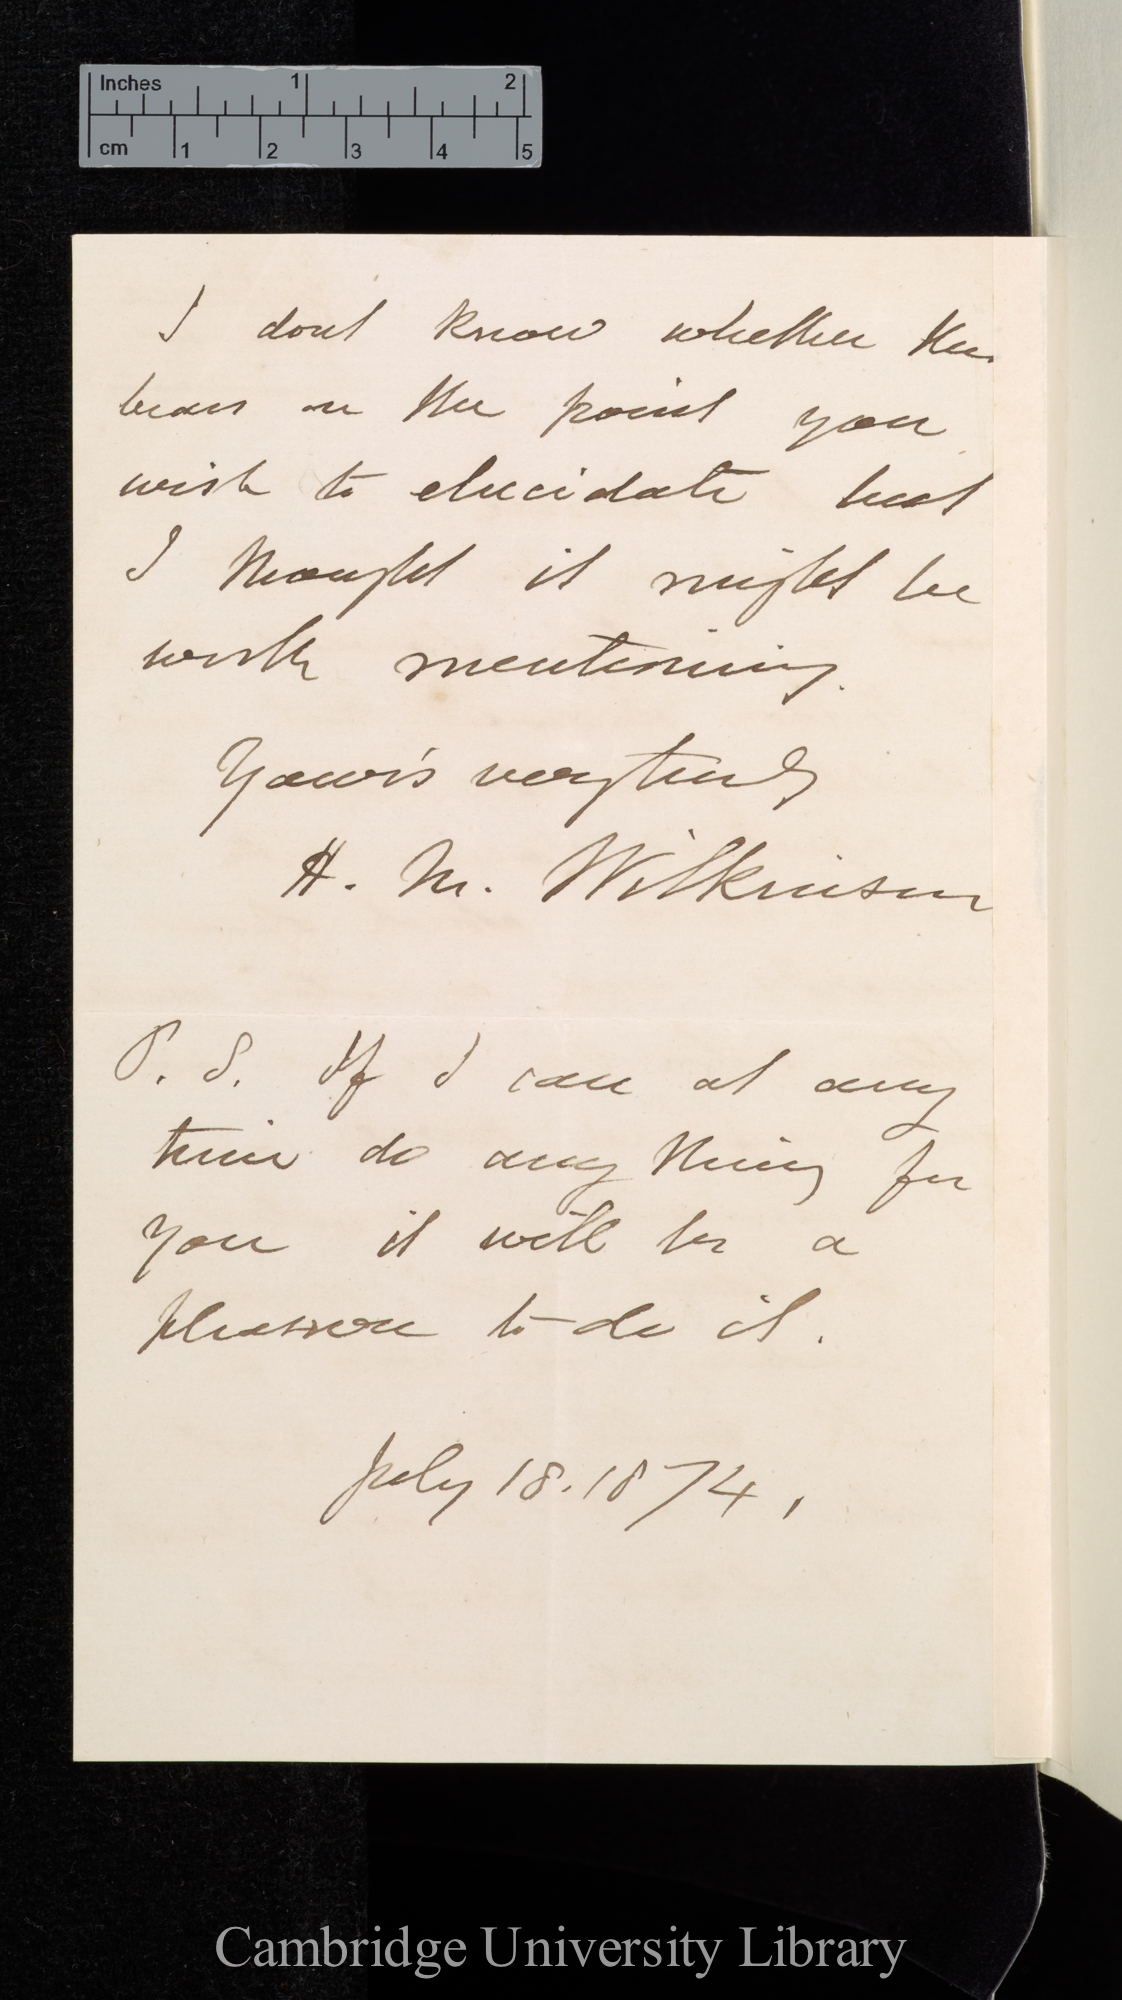 Inches 1 2
cm 1 2 3 4 5
I dont know whether this
bears on the point you
wish to elucidate but
I thought it might be
worth mentioning.
Yours very truly
H. M. Wilkinson
P. S. If I can at any
time do any thing for
you it will be a
pleasure to do it.
July 18. 1874.
Cambridge University Library